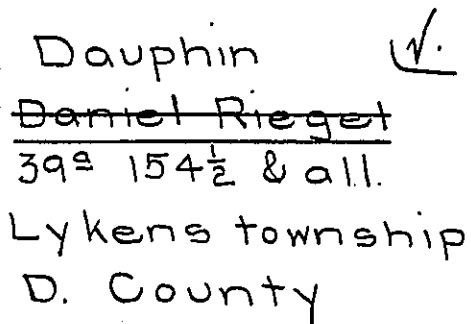 Dauphin √.
Daniel Riegel
39ª 154½ & all.
Lykens township
D. County